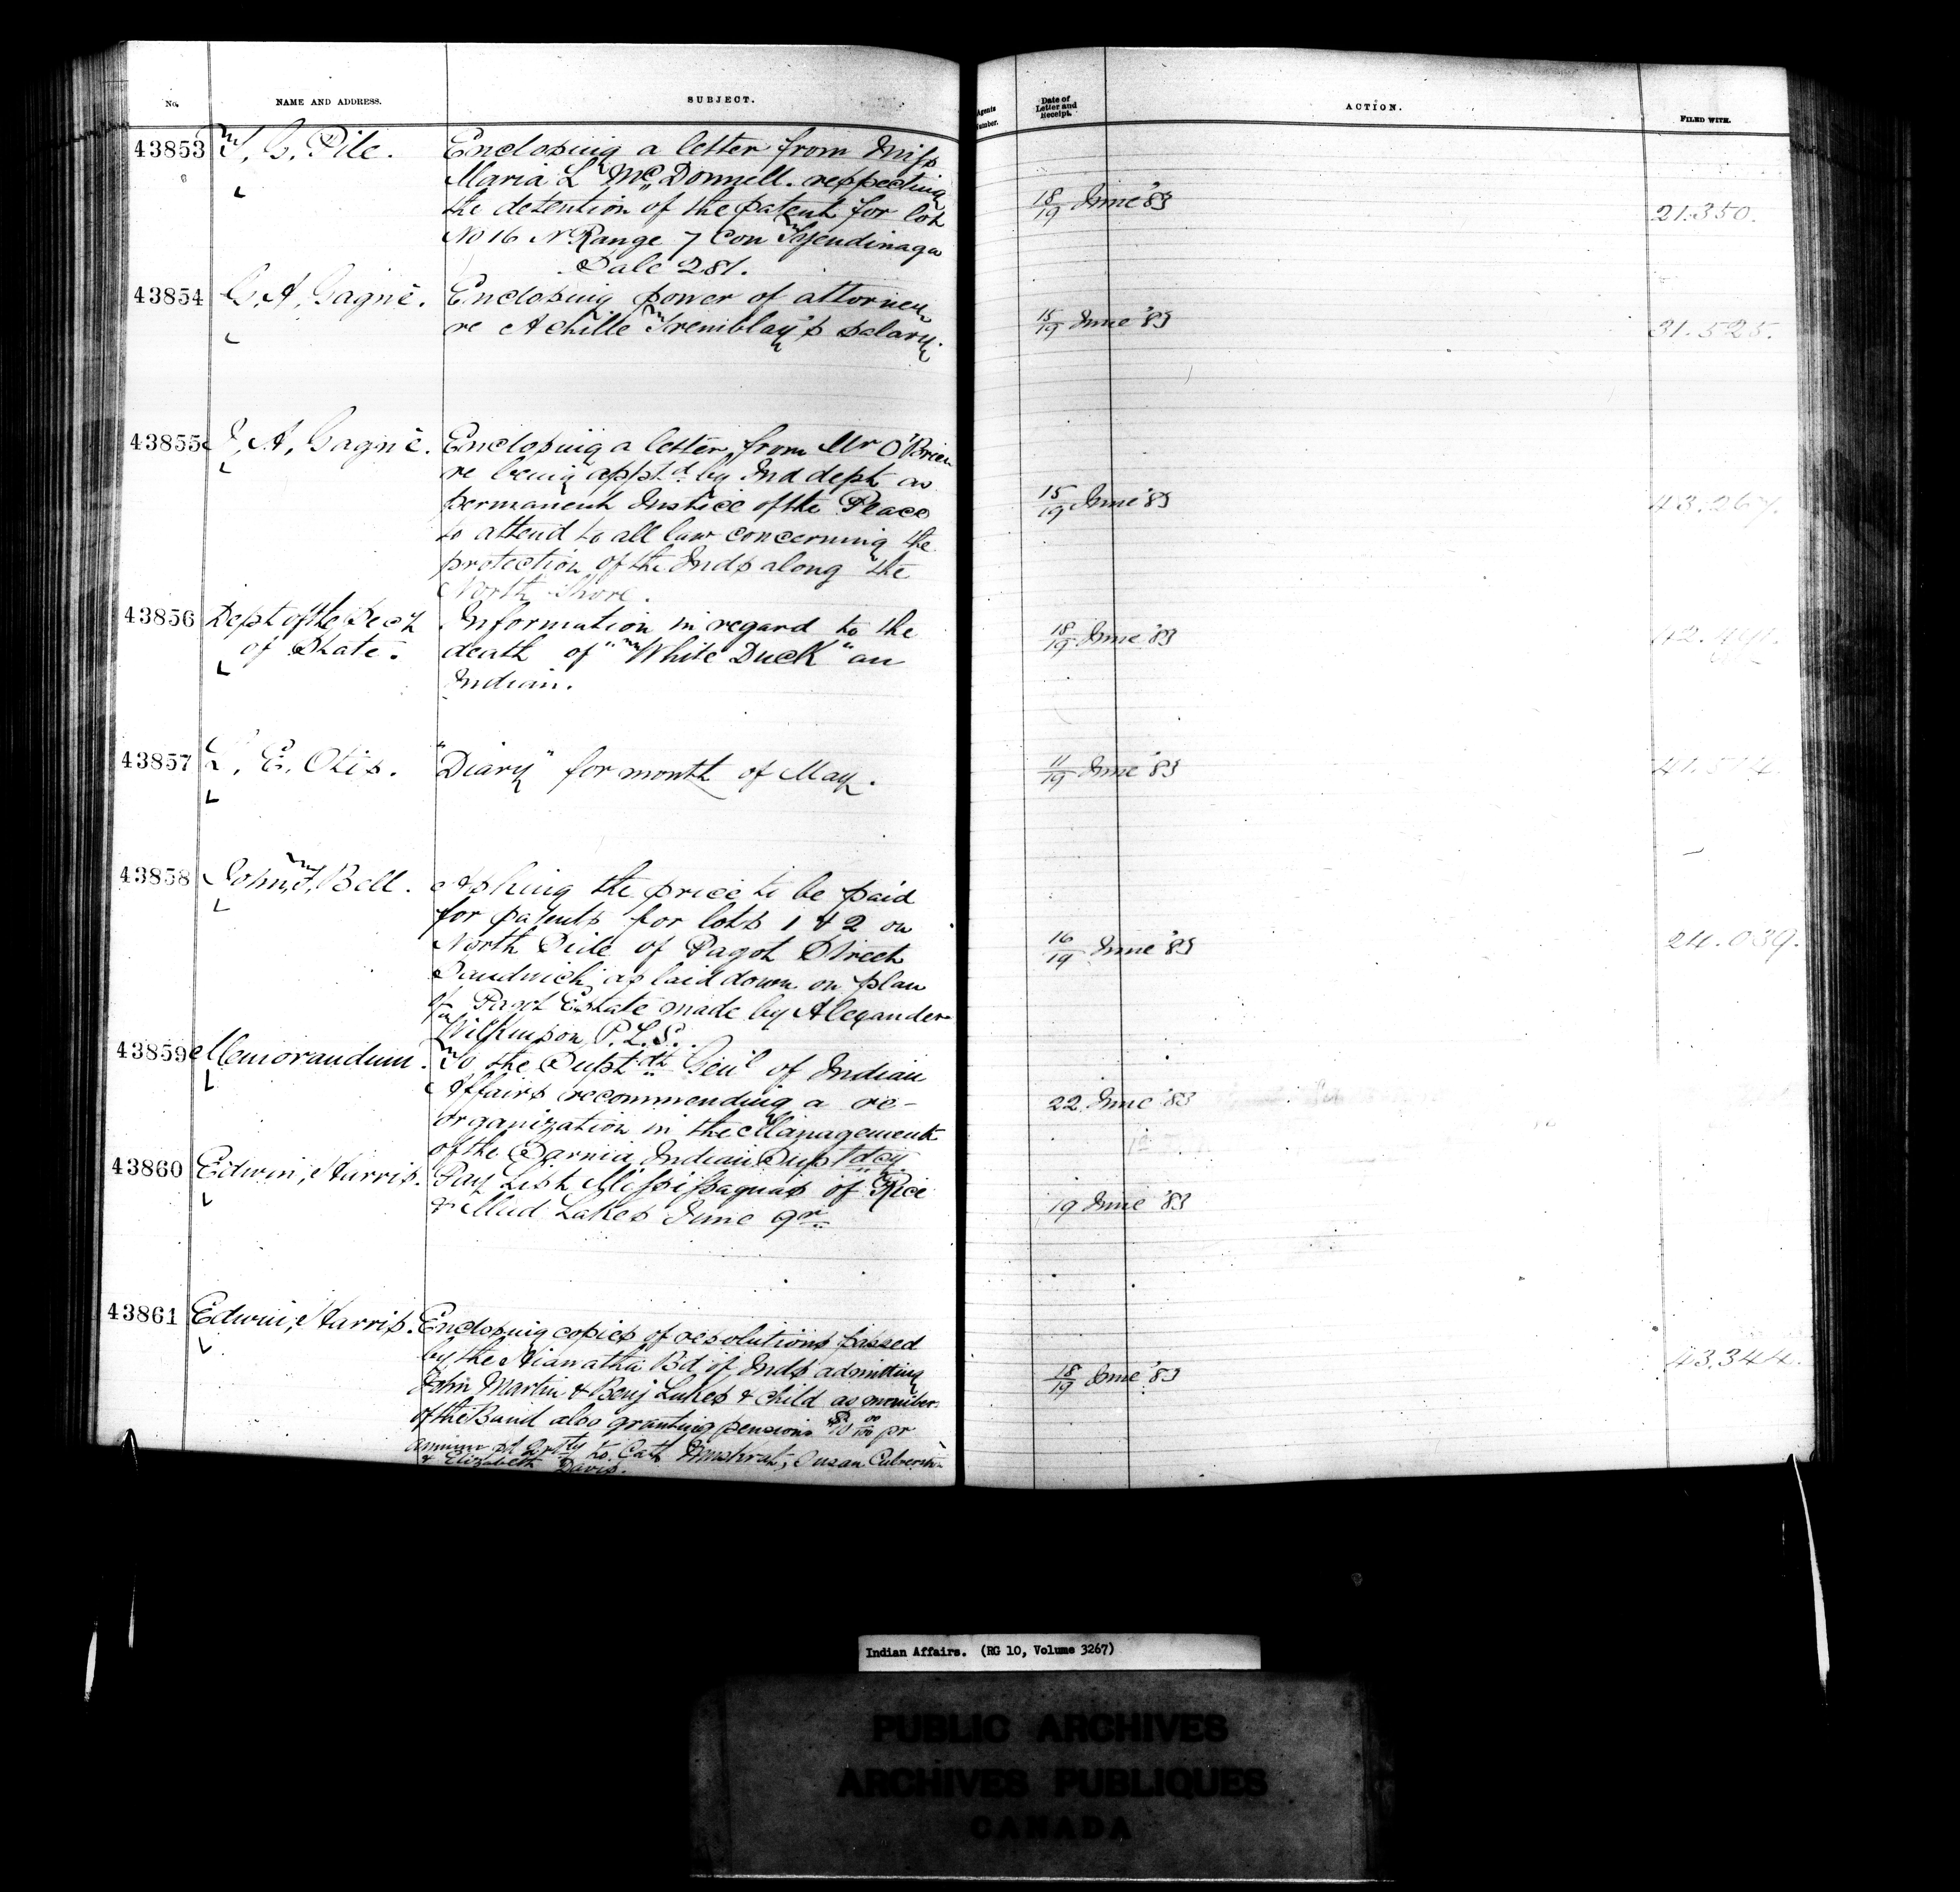 No.
NAME AND ADDRESS.
SUBJECT.
Agents Number.
Date of Letter and Receipt.
ACTION.
FILED WITH.
43853
T. G. Pile.
Enclosing a letter from Miss
Maria L McDonnell. respecting
the detention of the patent for lot
No 16 N Range 7 Con Tyendinaga
Sale 281.
18/19 June '83
21.350.
43854
Gagnè.
Enclosing power of attorney
re Achille Tremblay's salary.
15/19 June '83
31.525.
43855
A. Gagnè.
Enclosing a letter from Mr O'Brien
re being appt'd by Ind dept as
permanent Justice of the Peace
to attend to all law concerning the
protection of the Inds along the
North Shore.
15/19 June '83
43.267.
43856
Dept of the Secy
of State.
Information in regard to the
death of "White Duck" an
Indian.
18/19 June '83
43857
L. E. Otis.
"Diary" for month of May.
11/19 June '83
41.514.
43858
John, Bell.
Asking the price to be paid
for patents for lots 1 & 2 on
North Side of Pagot Street
Sandwich, as laid down on plan
of Estate made by Alexander
Wilkinson, P.L.S.
16/19 June '83
24.039.
43859
Memorandum.
To the Supt'dt Gen'l of Indian
Affairs recommending a re-
organization in the Management
of the Sarnia Indian Supt'dcy
22 June '83
43860
Edwin, Harris.
Pay List Mississaguas of Rice
& Mud Lakes June qr
19 June '83
43861
Edwin, Harris.
Enclosing copies of resolutions passed
by the Bd of Inds admitting
John Martin & Benj Lukes & child as member
of the Band also granting pensions $10 00/100 pr
annum pd qrtly to Cath Muskrat, Susan
& Elizabeth Davis.
18/19 June '83
43,344.
Indian Affairs. (RG 10, Volume 3267)
PUBLIC ARCHIVES
ARCHIVES PUBLIQUES
CANADA